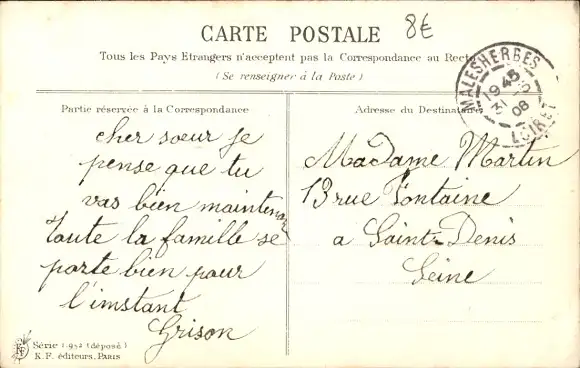 CARTE POSTALE
8€
Tous les Pays Etrangers n'acceptent pas la Correspondance au Recto
(Se renseigner à la Poste)
MALESHERBES
19 45
31 -5
08
LOIRET
Partie réservée à la Correspondance
Adresse du Destinataire
cher sœur je
pense que tu
vas bien maintenant
toute la famille se
porte bien pour
l'imstant
Grison
Madame Martin
13 rue Fontaine
a Saint-Denis
Seine
Série 1.952 (déposé)
K. F. éditeurs, Paris